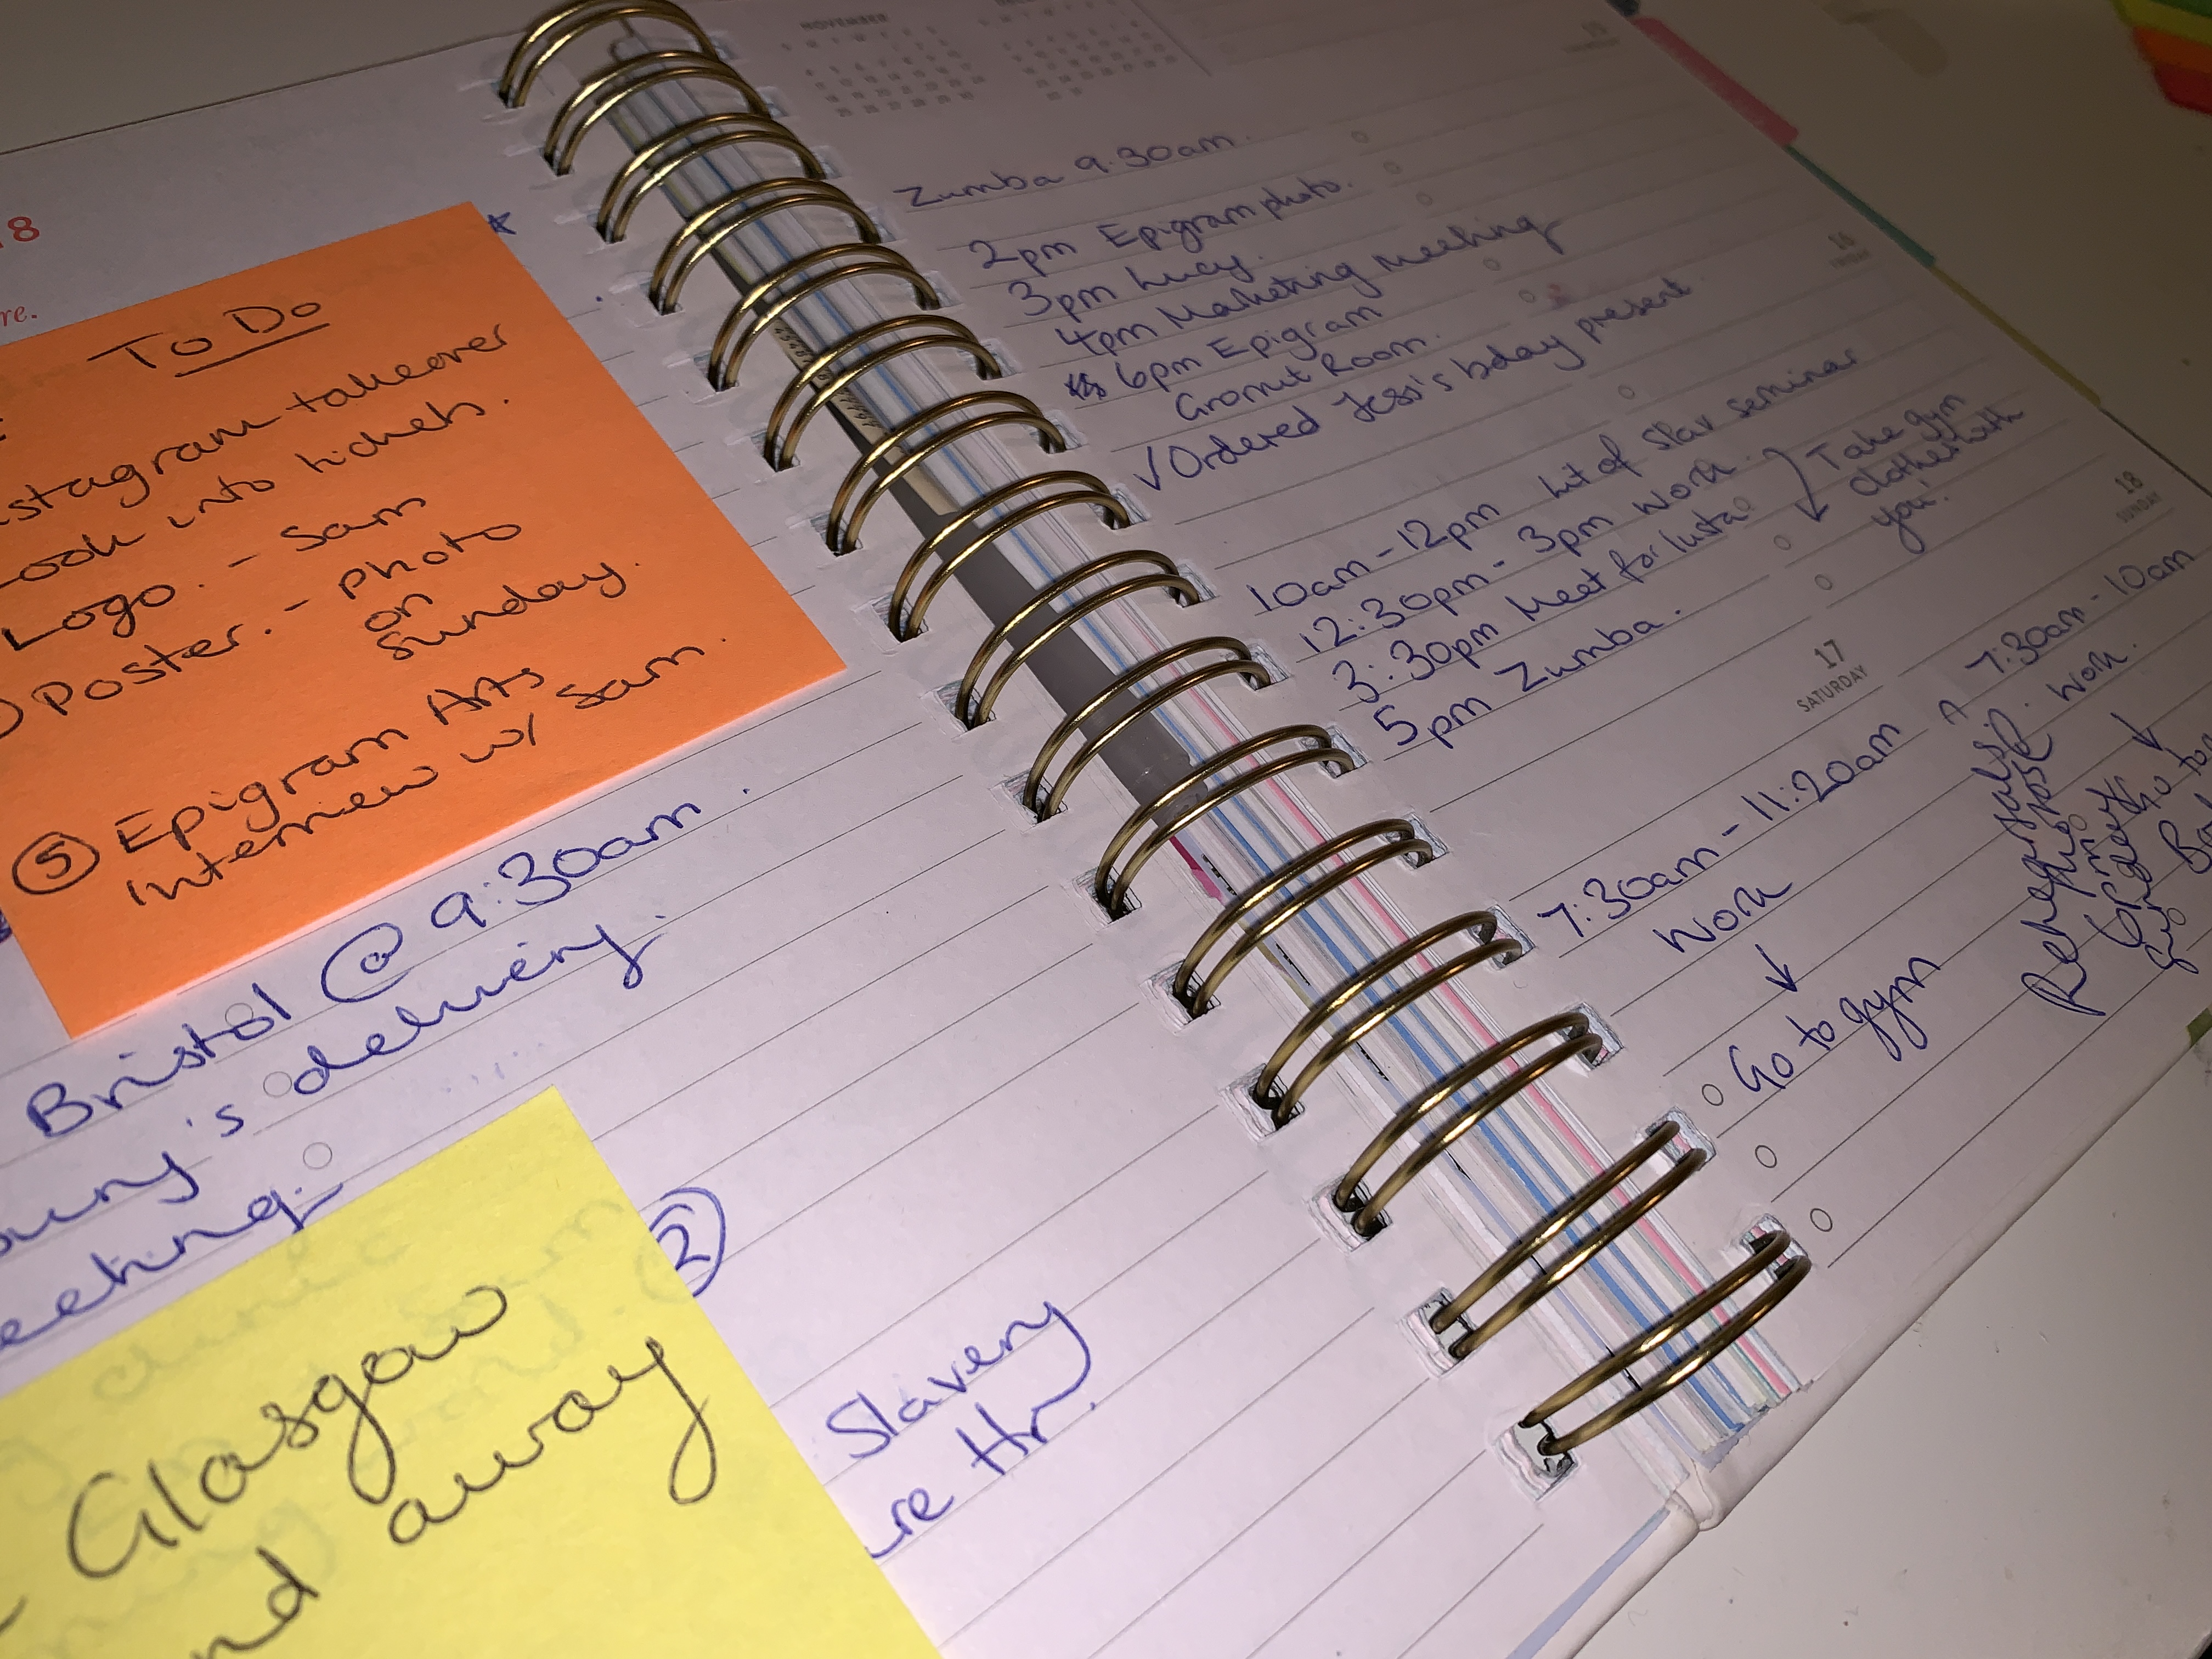 18
re.
To Do
stagram takeover
Look into tickets.
Logo. - Sam
Poster. - photo
on
Sunday.
⑤ Epigram Arts
Interview w/ Sam.
Bristol @ 9:30am.
's delivery.
eeting.
②
Glasgow
away
Slavery
re Hr.
NOVEMBER
15
THURSDAY
Zumba 9.30am.
2pm Epigram photo.
3pm Lucy.
4pm Marketing Meeting
6pm Epigram
Gromit Room.
✓ Ordered Jess's bday present
16
FRIDAY
10am - 12pm Lit of Slav seminar
12:30pm - 3pm Work.
3:30pm Meet for Insta
5pm Zumba.
Take gym
clothes with
you.
17
SATURDAY
7:30am - 11:20am
Work
↓
Go to gym
18
SUNDAY
7:30am - 10am
Work.
↓
Rehearsals